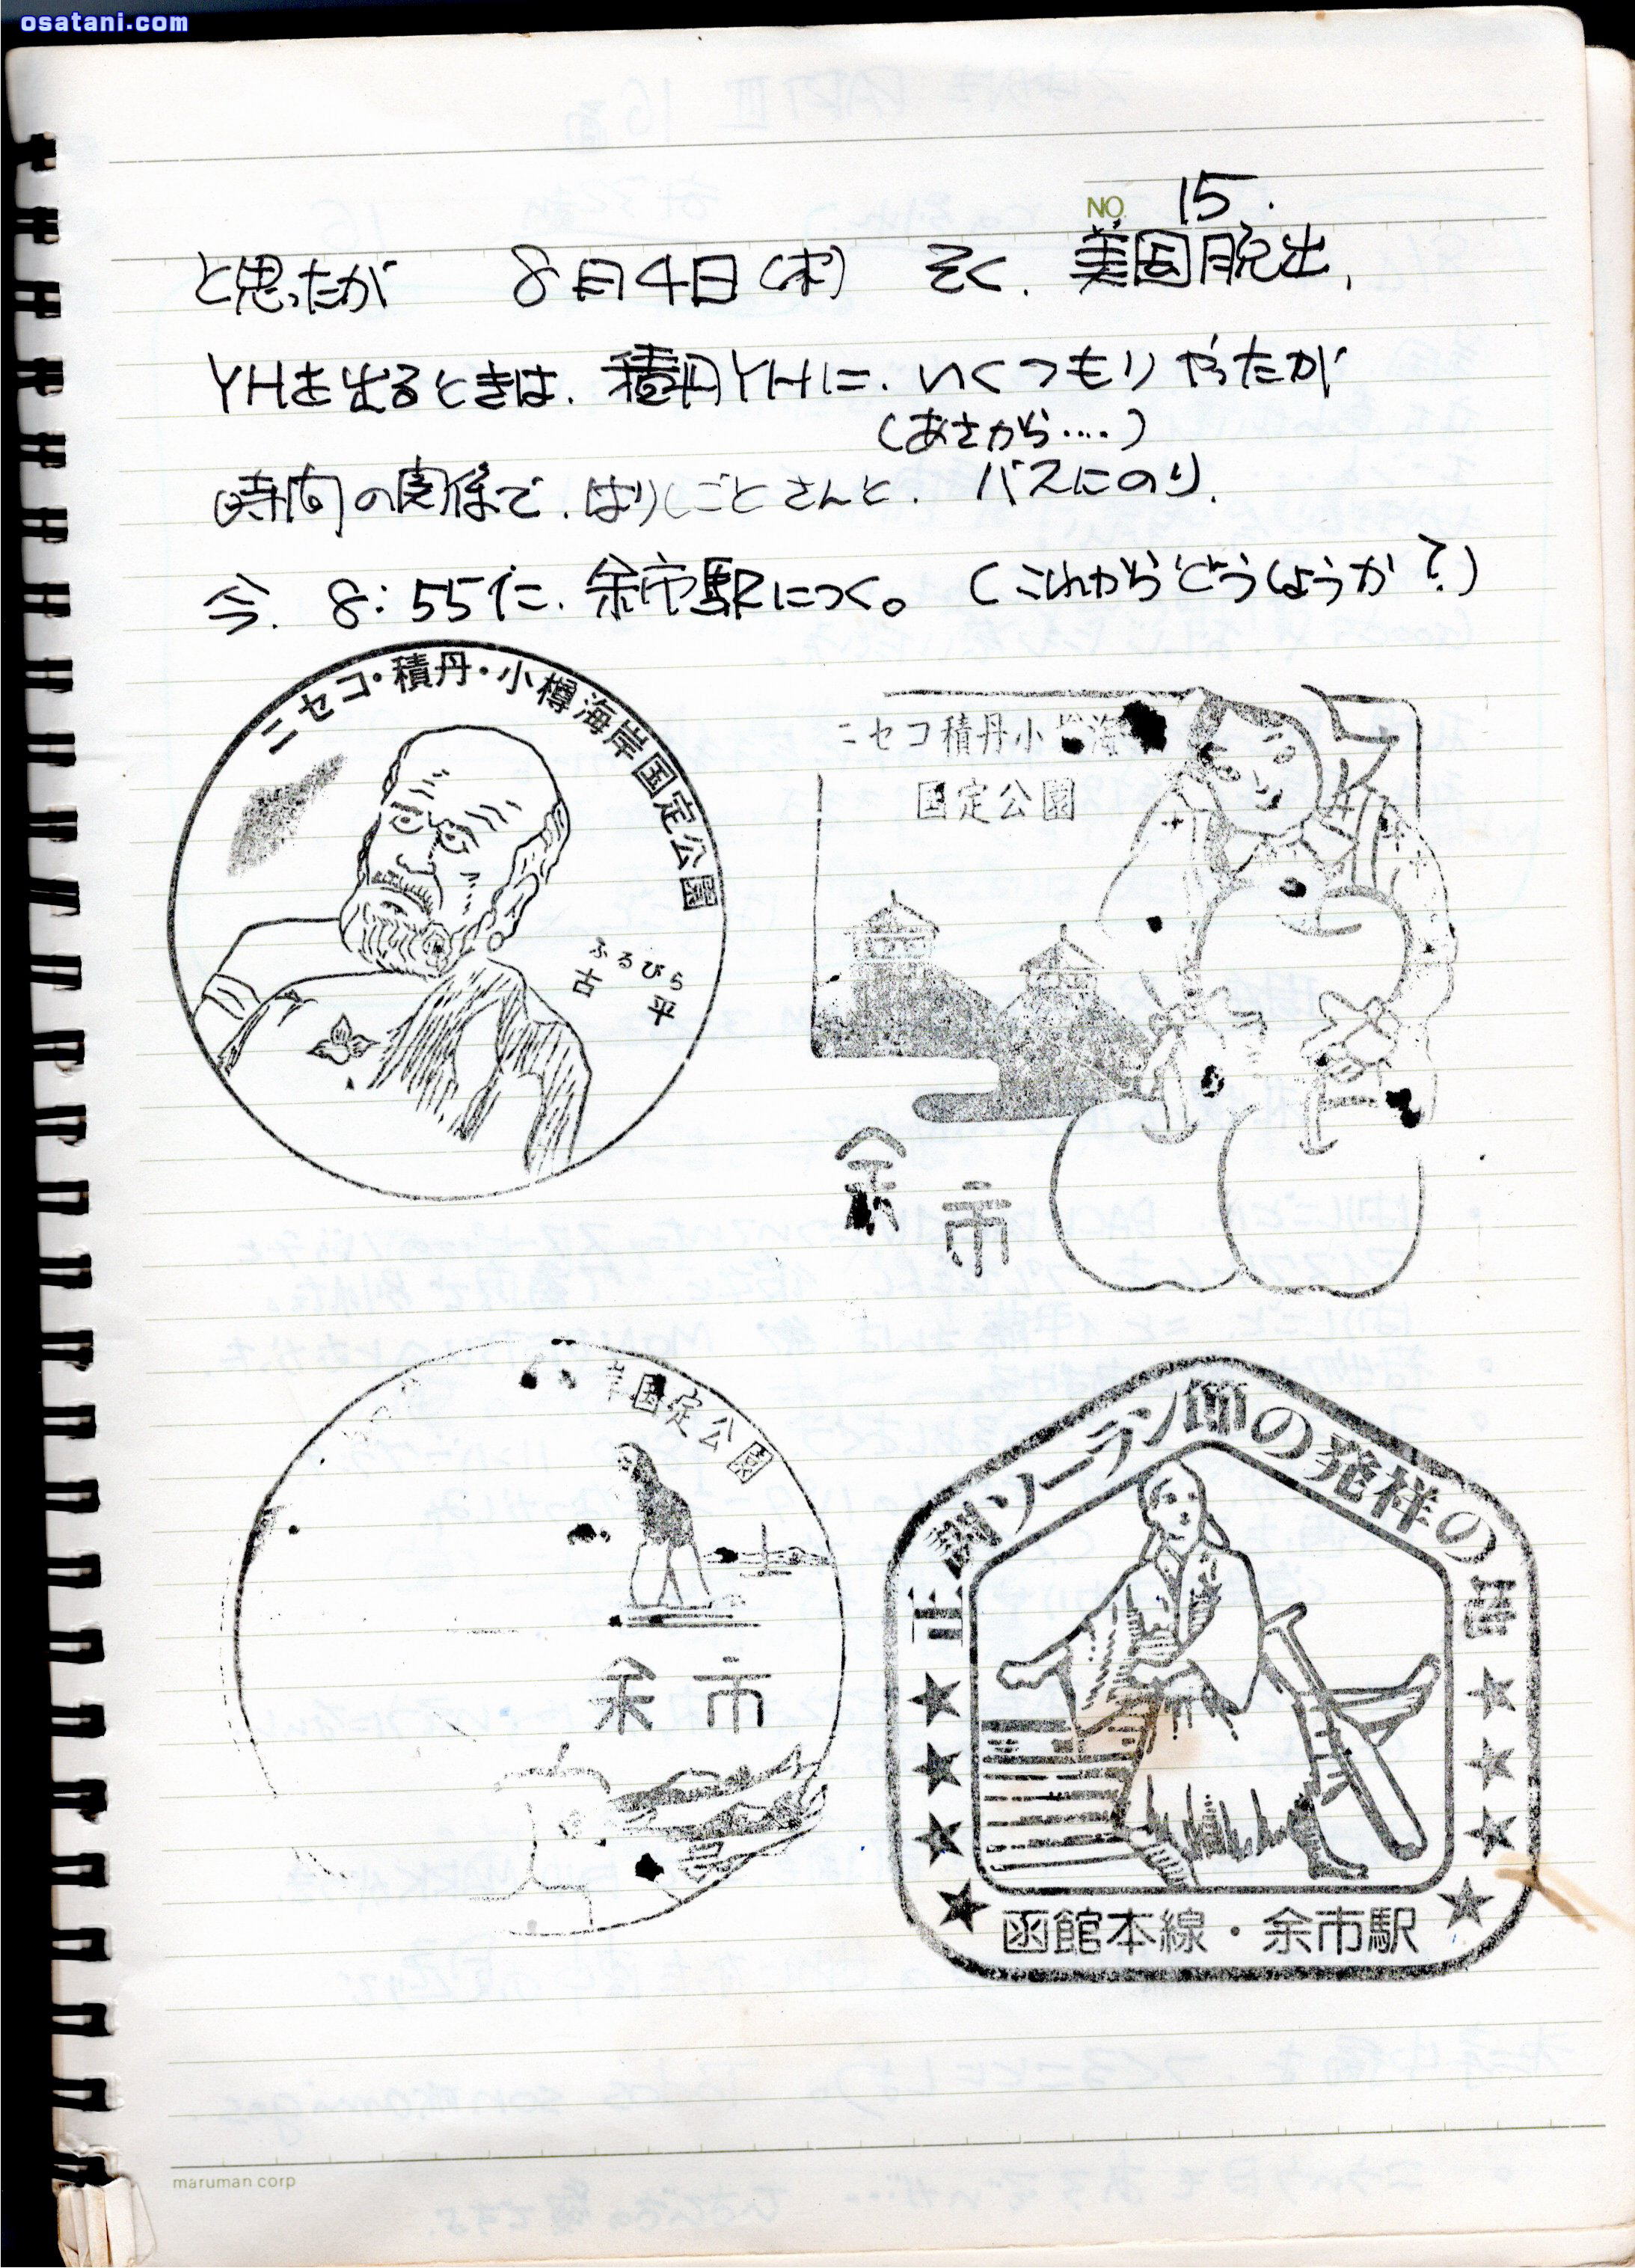 osatani.com
NO. 15.
と思ったが 8月4日(木) そく、美国脱出、
YHを出るときは、積丹YHに、いくつもりやったが
(あさから....)
時間の関係で、はりしごとさんと、バスにのり、
今、8:55に、余市駅につく。 (これからどうしようか?)
ニセコ・積丹・小樽海岸国定公園
ふるびら
古平
ニセコ積丹小 海
国定公園
余市
岸国定公園
余市
正調ソーラン節の発祥の地
函館本線・余市駅
maruman corp